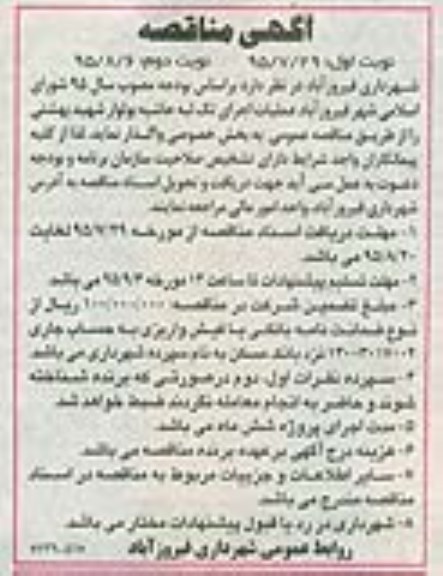 آگهی مناقصه
نوبت اول: ۹۵/۷/۲۹ نوبت دوم: ۹۵/۸/۶
شهرداری فیروزآباد در نظر دارد براساس بودجه مصوب سال ۹۵ شورای
اسلامی شهر فیروزآباد عملیات اجرای تک لبه حاشیه بولوار شهید بهشتی
را از طریق مناقصه عمومی به بخش خصوصی واگذار نماید. لذا از کلیه
پیمانکاران واجد شرایط دارای تشخیص صلاحیت سازمان برنامه و بودجه
دعوت به عمل می آید جهت دریافت و تحویل اسناد مناقصه به آدرس
شهرداری فیروزآباد واحد امور مالی مراجعه نمایند.
۱- مهلت دریافت اسناد مناقصه از مورخه ۹۵/۷/۲۹ لغایت
۹۵/۸/۲۰ می باشد.
۲- مهلت تسلیم پیشنهادات تا ساعت ۱۳ مورخه ۹۵/۹/۳ می باشد.
۳- مبلغ تضمین شرکت در مناقصه: ۱۰۰/۰۰۰/۰۰۰ ریال از
نوع ضمانت نامه بانکی یا فیش واریزی به حساب جاری
نزد بانک مسکن به نام سپرده شهرداری می باشد.
۴- سپرده نفرات اول، دوم درصورتی که برنده شناخته
شوند و حاضر به انجام معامله نگردند ضبط خواهد شد.
۵- مدت اجرای پروژه شش ماه می باشد.
۶- هزینه درج آگهی برعهده برنده مناقصه می باشد.
۷- سایر اطلاعات و جزییات مربوط به مناقصه در اسناد
مناقصه مندرج می باشد.
۸- شهرداری در رد یا قبول پیشنهادات مختار می باشد.
روابط عمومی شهرداری فیروزآباد